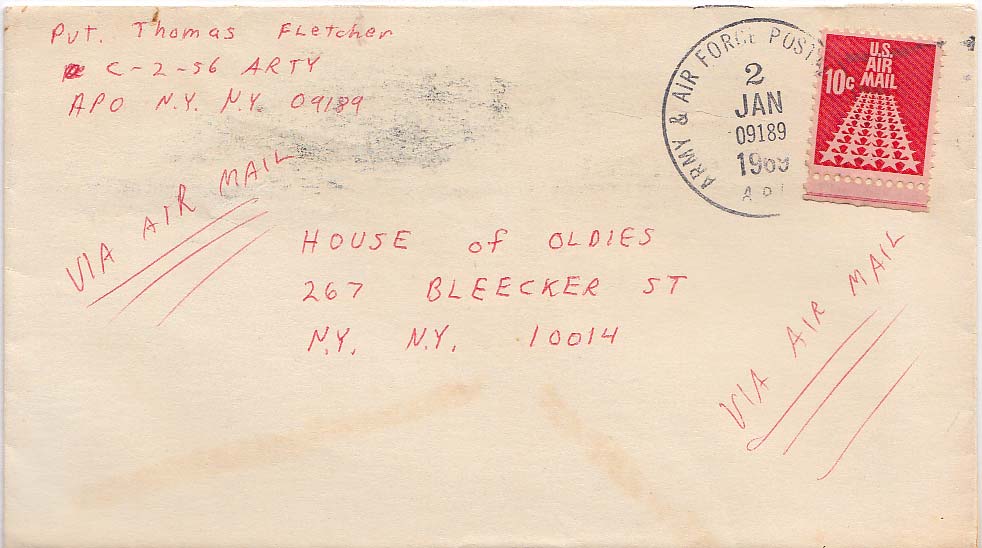 Pvt. Thomas Fletcher
C-2-56 ARTY
APO N.Y. N.Y. 09189
ARMY & AIR FORCE POST
2
JAN
09189
1969
U.S.
AIR
MAIL
10c
VIA AIR MAIL
HOUSE of OLDIES
267 BLEECKER ST
N.Y. N.Y. 10014
VIA AIR MAIL